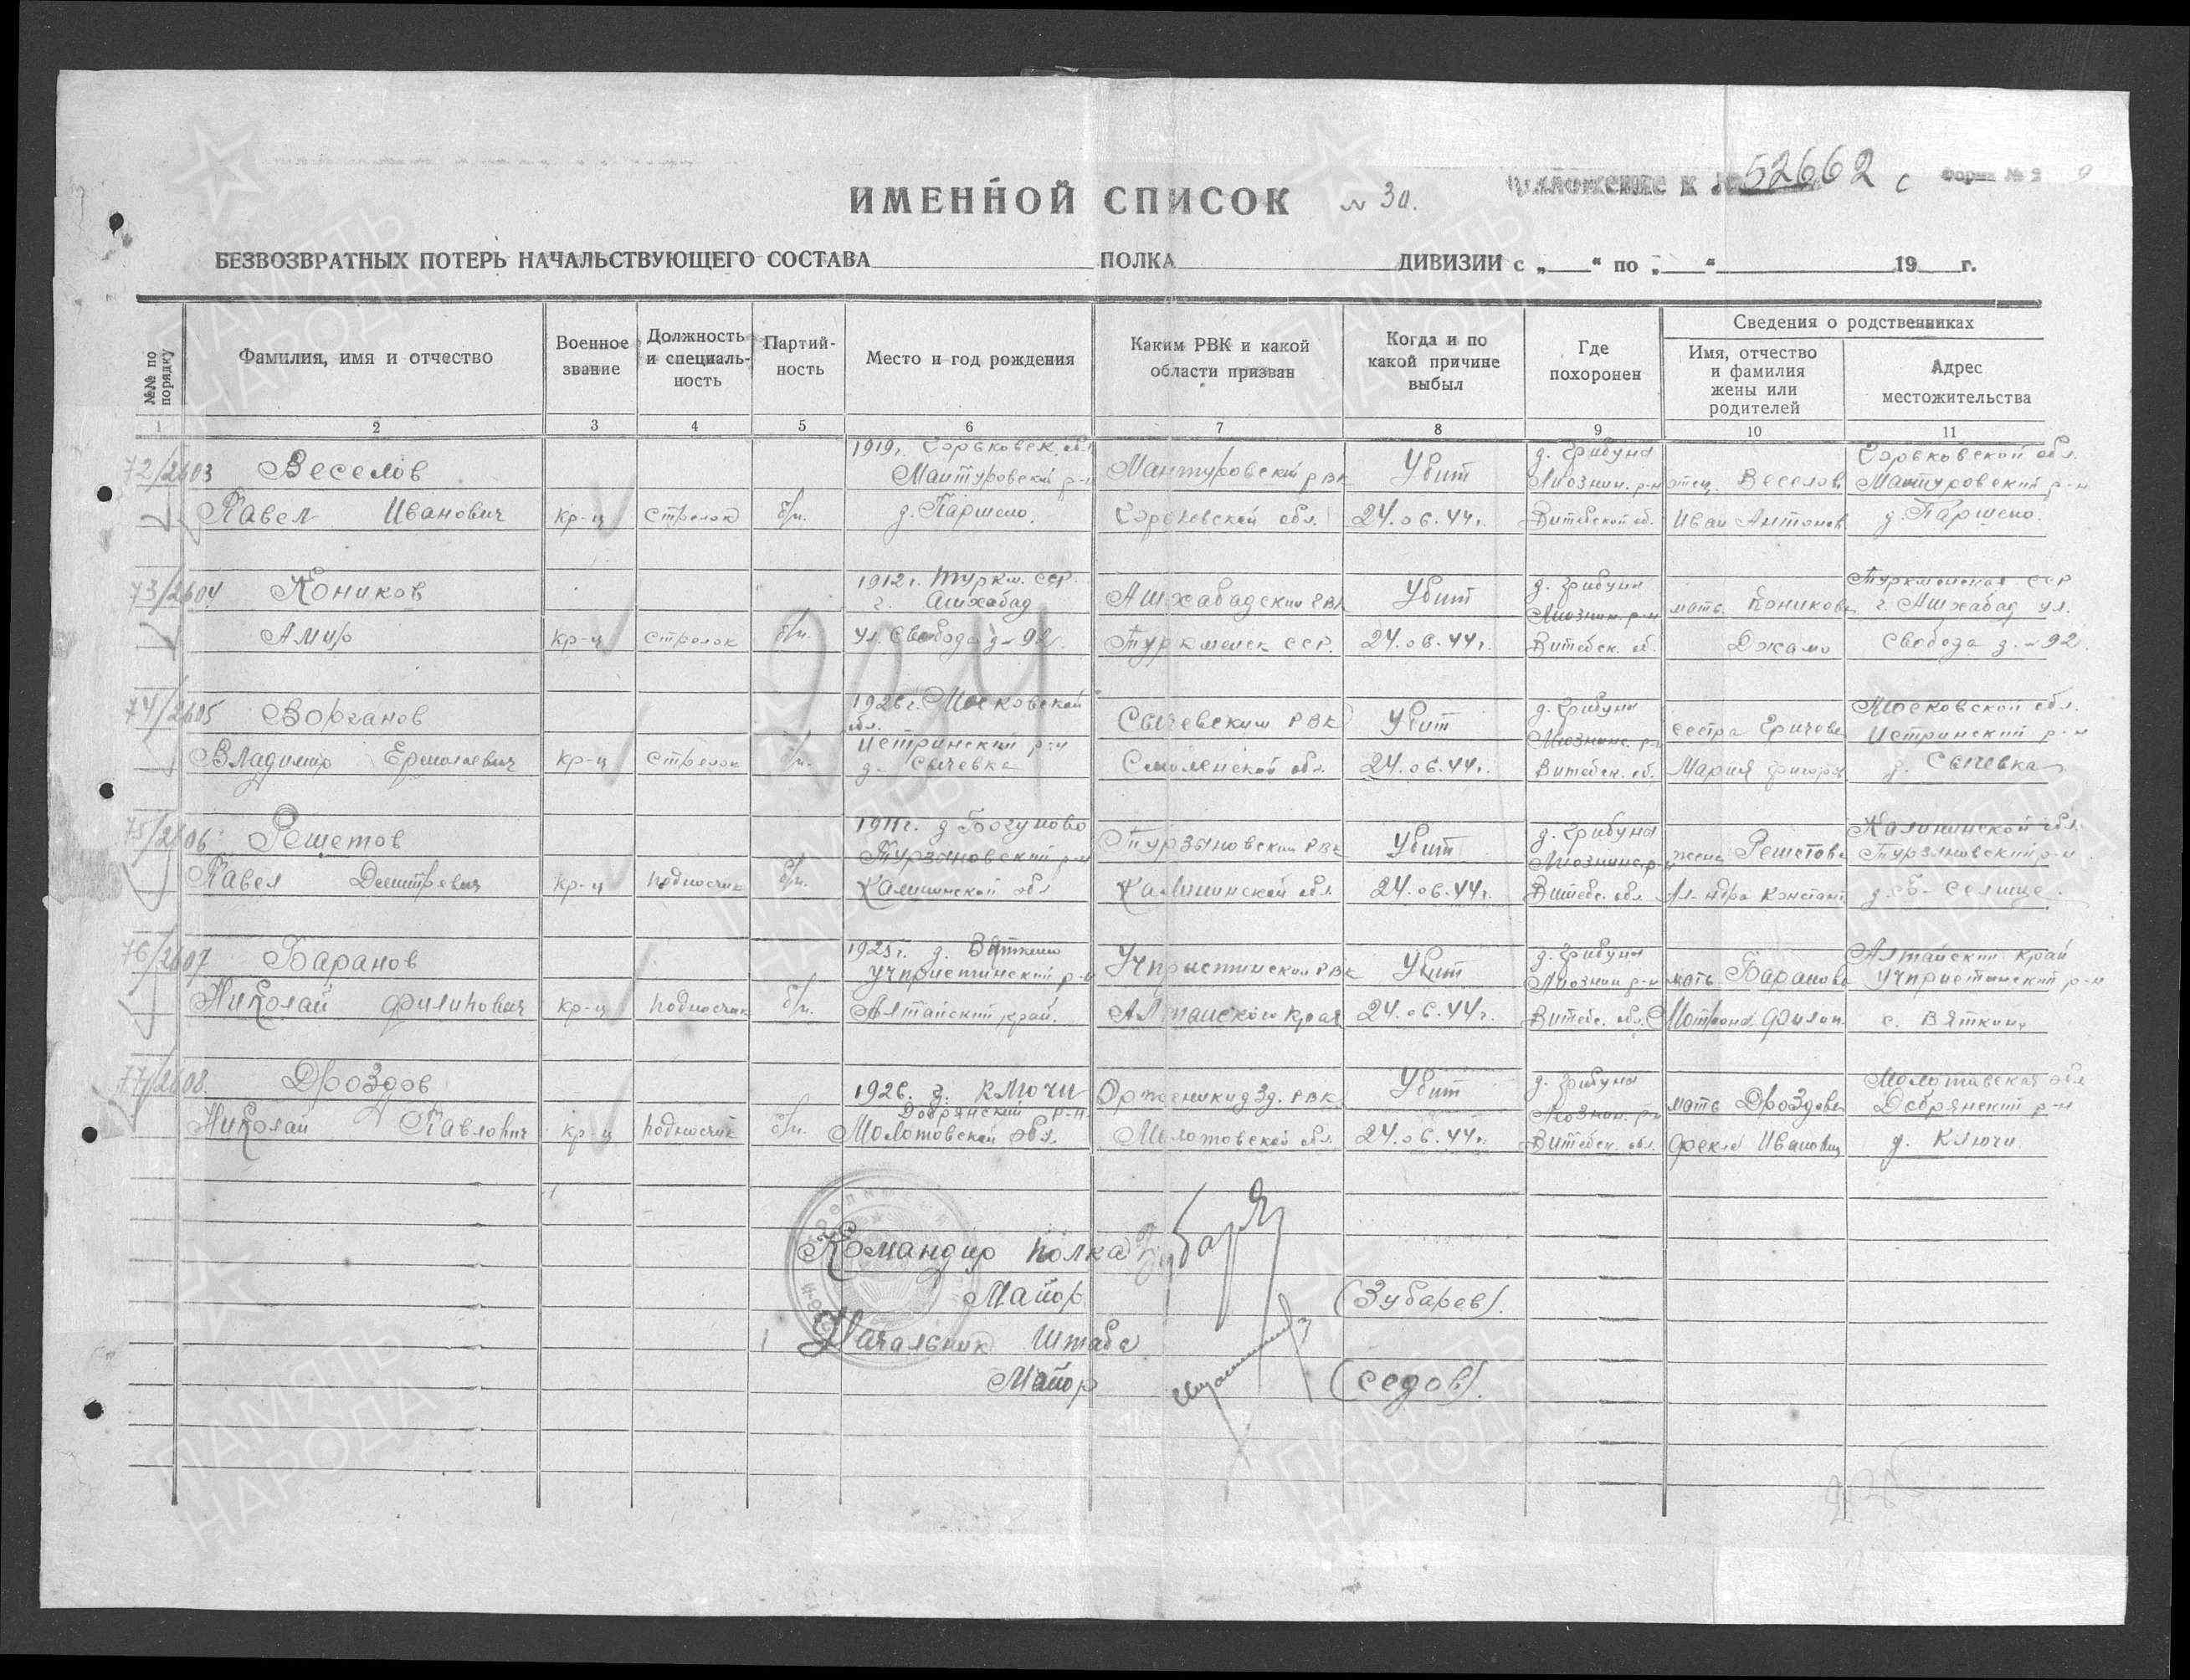 Приложение к № 52662 с Форма № 2
ИМЕННОЙ СПИСОК № 30.
БЕЗВОЗВРАТНЫХ ПОТЕРЬ НАЧАЛЬСТВУЮЩЕГО СОСТАВА ПОЛКА ДИВИЗИИ с „ “ по „ “ 19 г.
№№ по порядку
Фамилия, имя и отчество
Военное звание
Должность и специальность
Партийность
Место и год рождения
Каким РВК и какой области призван
Когда и по какой причине выбыл
Где похоронен
Сведения о родственниках
Имя, отчество и фамилия жены или родителей
Адрес местожительства
1 2 3 4 5 6 7 8 9 10 11
72/2603 Веселов 1919г. Горьковск. обл. Мантуровский р-н Мантуровский РВК Убит д. Грибуны Лиознин. р-н отец Веселов Горьковской обл. Мантуровский р-н
Павел Иванович кр-ц стрелок б/п. д. Паршено. Горьковской обл. 24.06.44г. Витебской об. Иван Антонов. д. Паршено.
73/2604 Коников 1912г. Туркм. ССР г. Ашхабад Ашхабадский РВК Убит д. Грибуны Лиознин р-н мать Коникова Туркменская ССР г. Ашхабад ул.
Амир кр-ц стрелок б/п. ул. Свобода д-92. Туркменск ССР. 24.06.44г. Витебск. об. Джамо Свобода д.-92.
74/2605 Ворганов 1926г. Московской обл. Сычевским РВК Убит д. Грибуны Лиознин. р-н сестра Московской обл. Истринский р-н
Владимир Ермолаевич кр-ц стрелок б/п. Истринский р-н д. Сычевка Смоленской обл. 24.06.44г. Витебск. об. Мария Григор. д. Сычевка
75/2606 Решетов 1911г. д. Богуново Тургиновский р-н Тургиновским РВК Убит д. Грибуны Лиознинс. р-н жена Решетова Калининской обл. Тургиновский р-н
Павел Дмитревич кр-ц подносчик б/п. Калининской обл. Калининской обл. 24.06.44г. Витебс. обл. Ал-ндра Констант. д. б-Селище.
76/2607 Баранов 1925г. д. Вяткино Учпристинский р-н Учпристинским РВК Убит д. Грибуны Лиознин р-н мать Баранова Алтайский край Учпристанский р-н
Николай Филипович кр-ц подносчик б/п. Алтайский край. Алтайского края 24.06.44г. Витебс. обл. Матрона Филип. с. Вяткино
77/2608. Дроздов 1926. д. Ключи Орджоникидзд. РВК. Убит д. Грибуны Лиознин. р-н мать Дроздова Молотовская обл Добрянский р-н
Николай Павлович кр-ц подносчик б/п. Добрянский р-н Молотовской обл. Молотовской обл. 24.06.44г. Витебск. обл. Фекла Ивановна д. Ключи.
Командир полка
Майор (Зубарев).
Начальник Штаба
Майор (Седов).
ПАМЯТЬ НАРОДА